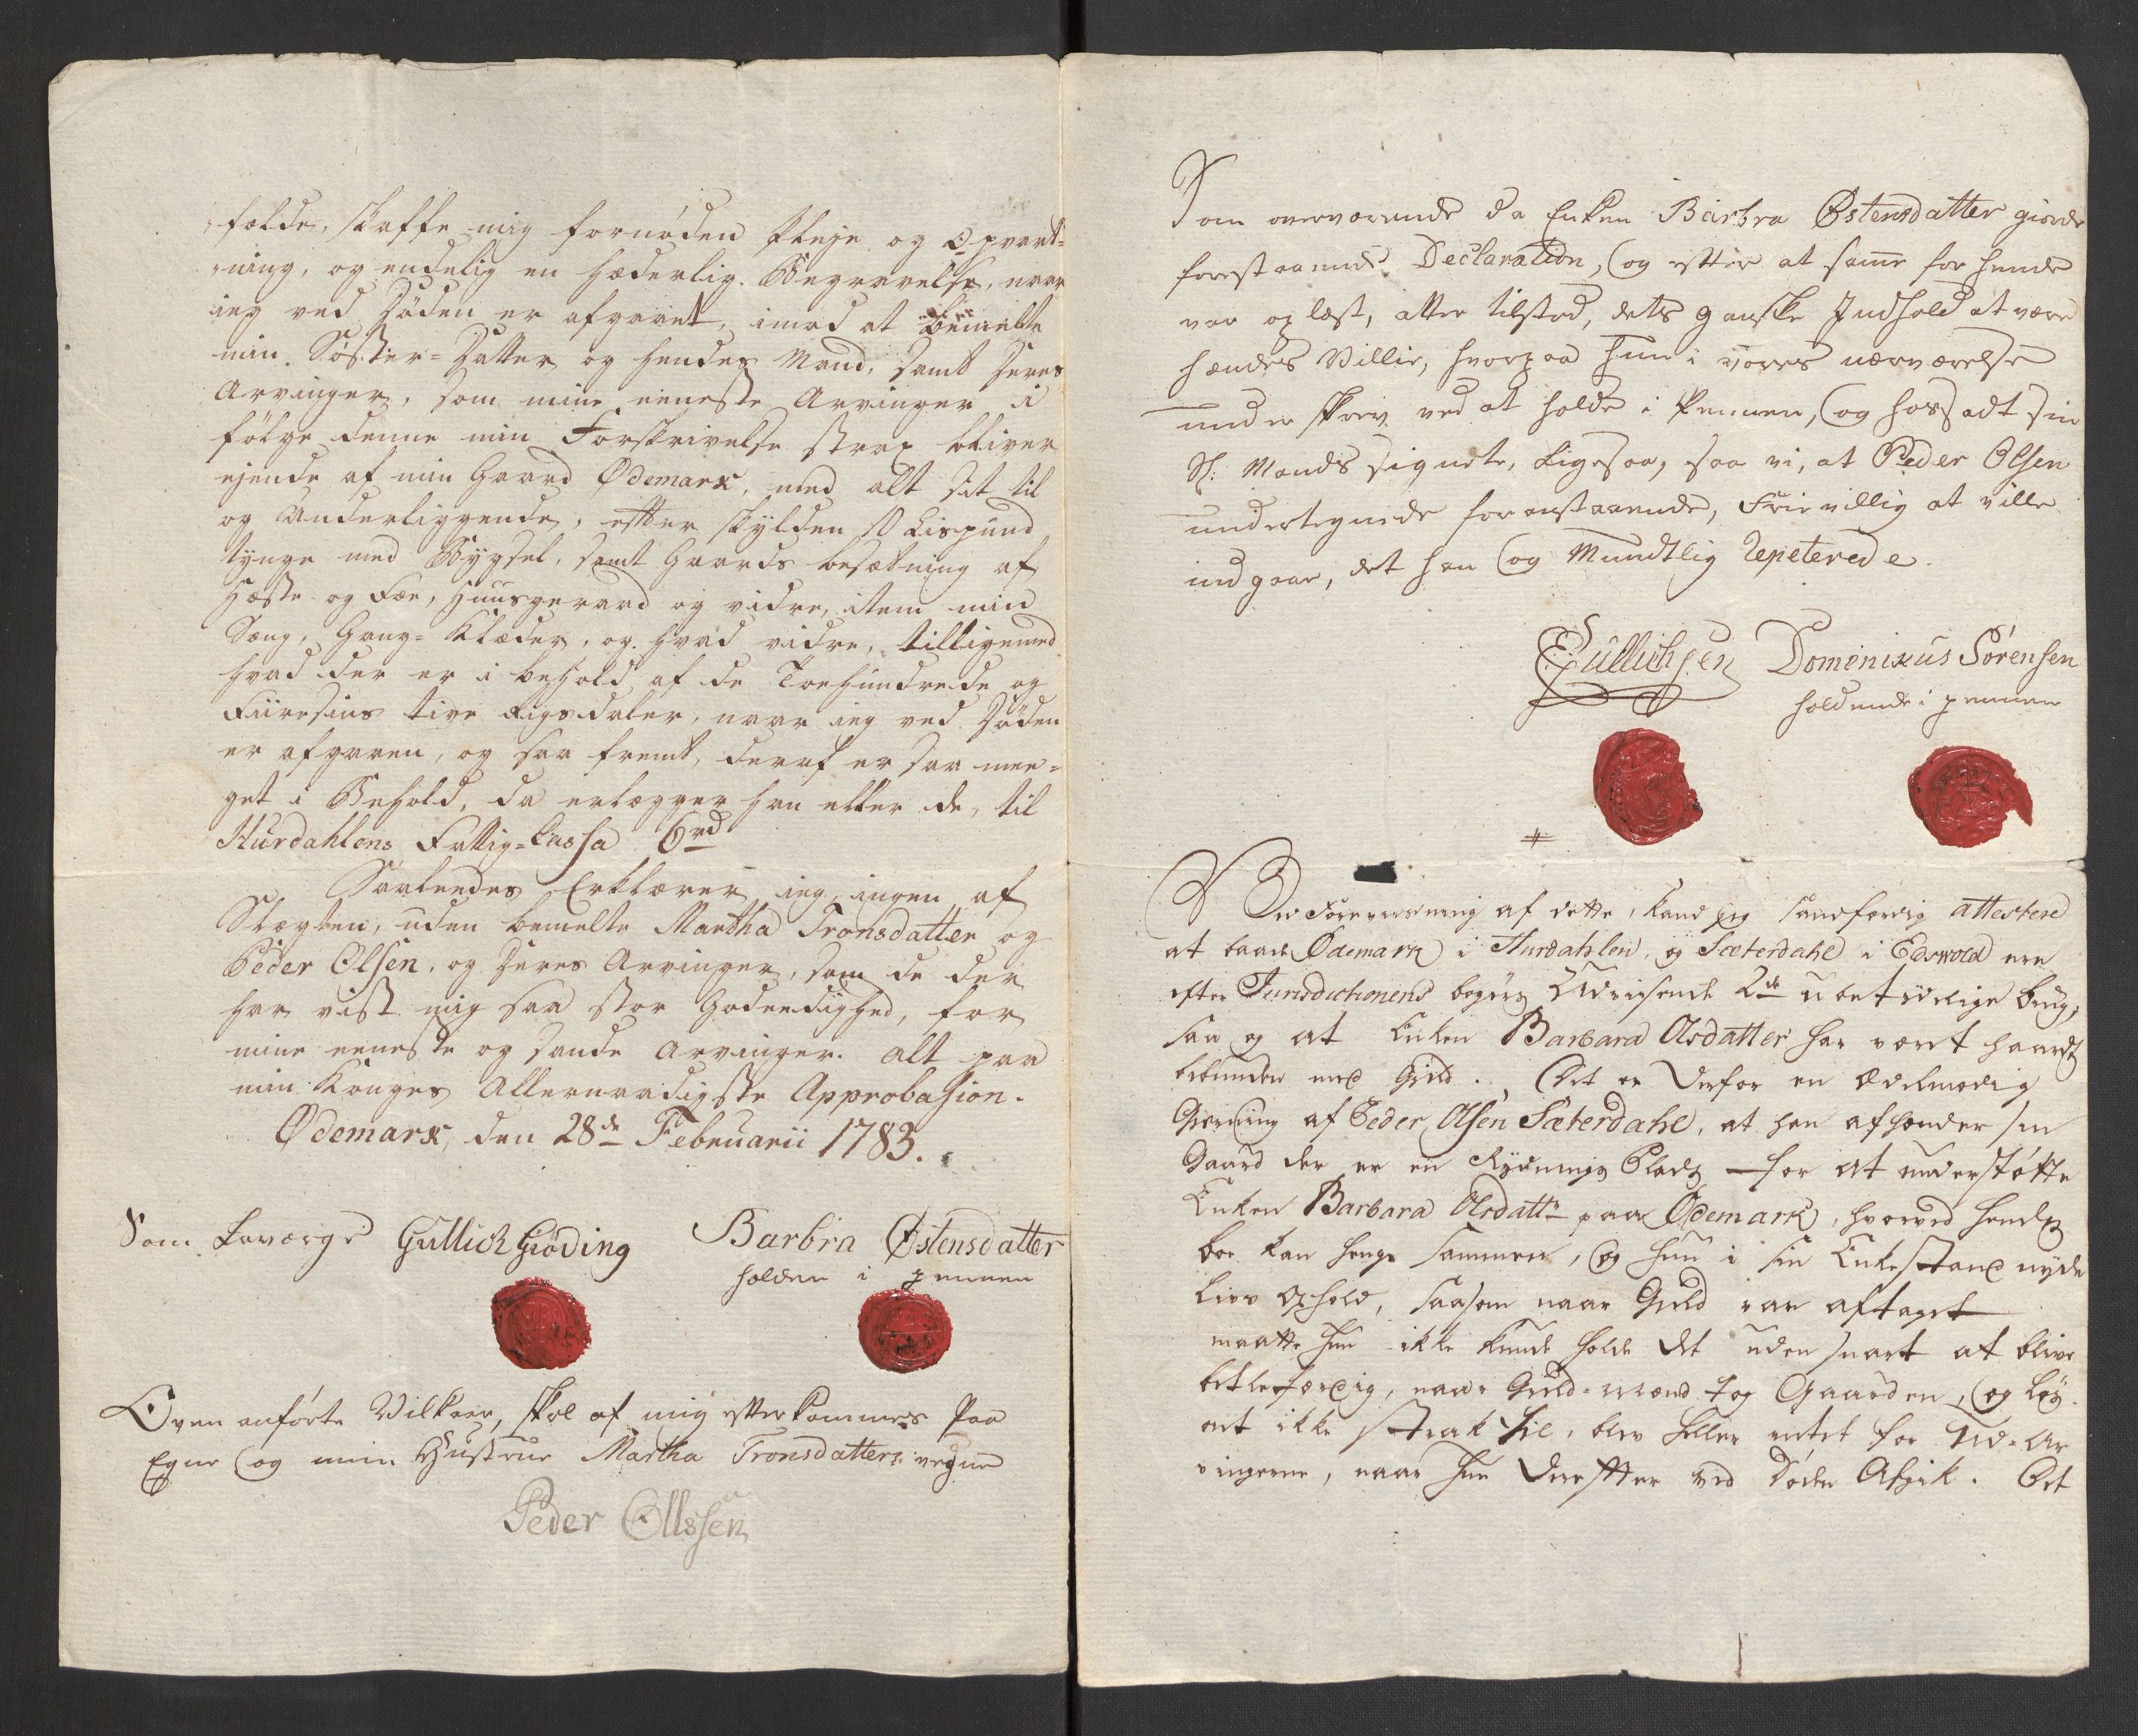 fælde, skaffe mig fornöden Pleje og Opvart=
ning, og endelig en hæderlig Begravelse, naar
ieg ved Döden er afgaaet, imod at bemelte
min Söster=Datter og hendes Mand, samt deres
Arvinger, som mine eeneste Arvinger i
fölge denne min Forskrivelse strax bliver
ejende af min Gaard Ødemark, med alt sit til
og Underliggende, efter skylden Lispund
tynge med Bygsel, samt Gaards besætning af
Hæste og Fæe, Huusgeraad og vidre, item min
Seng, Gang=Klæder, og hvad vidre, tilligemed
hvad der er i behold af de Toehundrede og
Fiiresins tive Rigsdaler, naar ieg ved Döden
er afgaaen, og saa fremt, deraf er saa mee=
get i Behold, da erlægger han eller de, til
Hurdahlens Fattig=Cassa 6rd
Saaleedes Erklærer ieg, ingen af
Slægten, uden bemelte Martha Tronsdatter og
Peder Olsen, og deres Arvinger, som de der
har vist mig saa stor Godendighed, for
mine eeneste og sande Arvinger. Alt paa
min Konges Allernaadigste Approbasion.
Ødemark, den 28de Februarii 1783.
Som Laværge Gullich Giöding Barbra Østensdatter
holden i pennen
Oven anförte Vilkaar, skal af mig efterkommes Paa
Egne og min Hustrue Martha Tronsdatters vegne
Peder Ollssen
Som overværende da Enken Barbra Østensdatter giorde
forestaaende Declaration, og efter at samme for hende
var oplæst, atter tilstod, dets gandske Indhold at være
hendes Villie, hvorpaa hun i vores nærværelse
underskrev ved at holde i Pennen, og hossadt sin
Sl: Mands signete, Ligesaa, saa vi, at Peder Olsen
undertegnede foranstaaende, Frievillig at ville
indgaae, det han og Mundtlig Repeterede.
Gullichsen Domenikus Sörensen
holdende i pennen
#
Ved Foreviisning af dette, kand jeg sandfærdig attestere
at baade Ödemark i Hurdahlen, og Sæterdahl i Eidswold ere
efter Jurisdictionens bögers Udviisende 2de ubetydelige brug,
saa og at Enken Barbara Olsdatter har været haardt
bebunden med Gield. Det er derfor en Ædelmodig
Gierning af Peder Olsen Sæterdahl, at han afhænder sin
Gaard der er en Rydnings Plads for at understötte
Enken Barbara Olsdattr paa Ödemark, hvorved hendes
boe kan henge sammen, og hun i sin Enkestand nyde
Livs Ophold, saasom naar Gield var aftaget
maatte hun ikke kunde holde det uden snart at blive
betlefærdig, naar Gield=mænd tog Gaarden, og
ikke strak til, blev heller intet for Ud=Ar
vingerne, naar hun derefter ved Döden Afgik. Det